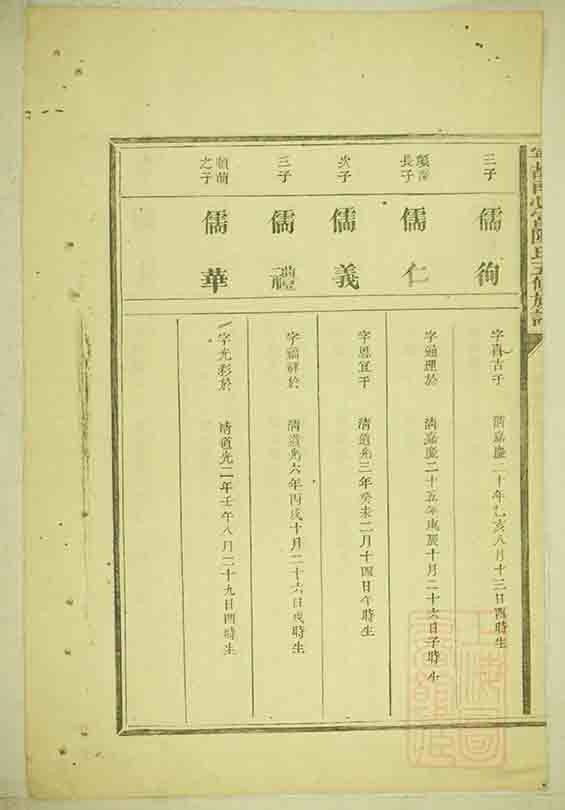 三子
儒徇
字喜古于 清嘉慶二十年乙亥八月十三日酉時生
長子
儒仁
字通理於 清嘉慶二十五年庚辰十月二十六日子時生
次子
儒義
字思宜于 清道光三年癸未二月十四日午時生
三子
儒禮
字福祥於 清道光六年丙戌十月二十六日戌時生
之子
儒華
字光彩於 清道光二年壬午八月二十九日酉時生